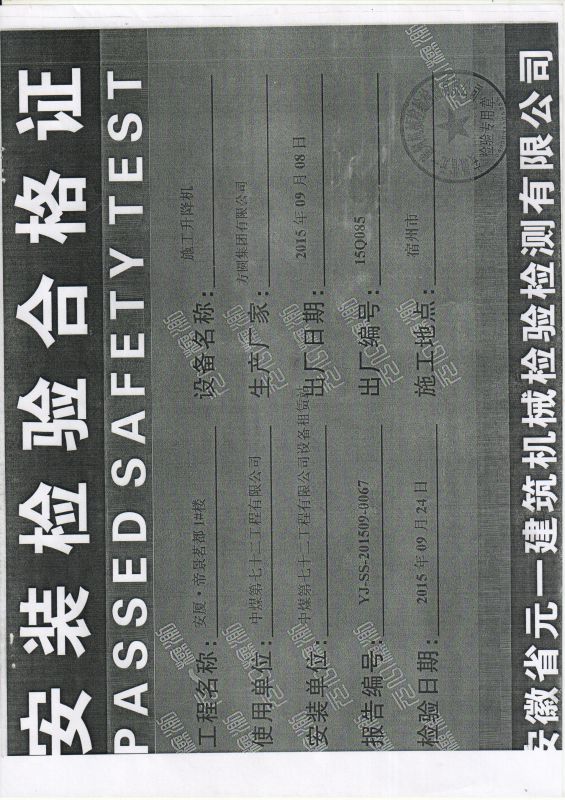 安装检验合格证
PASSED SAFETY TEST
工程名称： 安厦·帝景茗都1#楼
设备名称： 施工升降机
使用单位： 中煤第七十二工程有限公司
生产厂家： 方圆集团有限公司
安装单位： 中煤第七十二工程有限公司设备租赁站
出厂日期： 2015年09月08日
报告编号： YJ-SS-201509-0067
出厂编号： 15Q085
检验日期： 2015年09月24日
施工地点： 宿州市
检验专用章
安徽省元一建筑机械检验检测有限公司